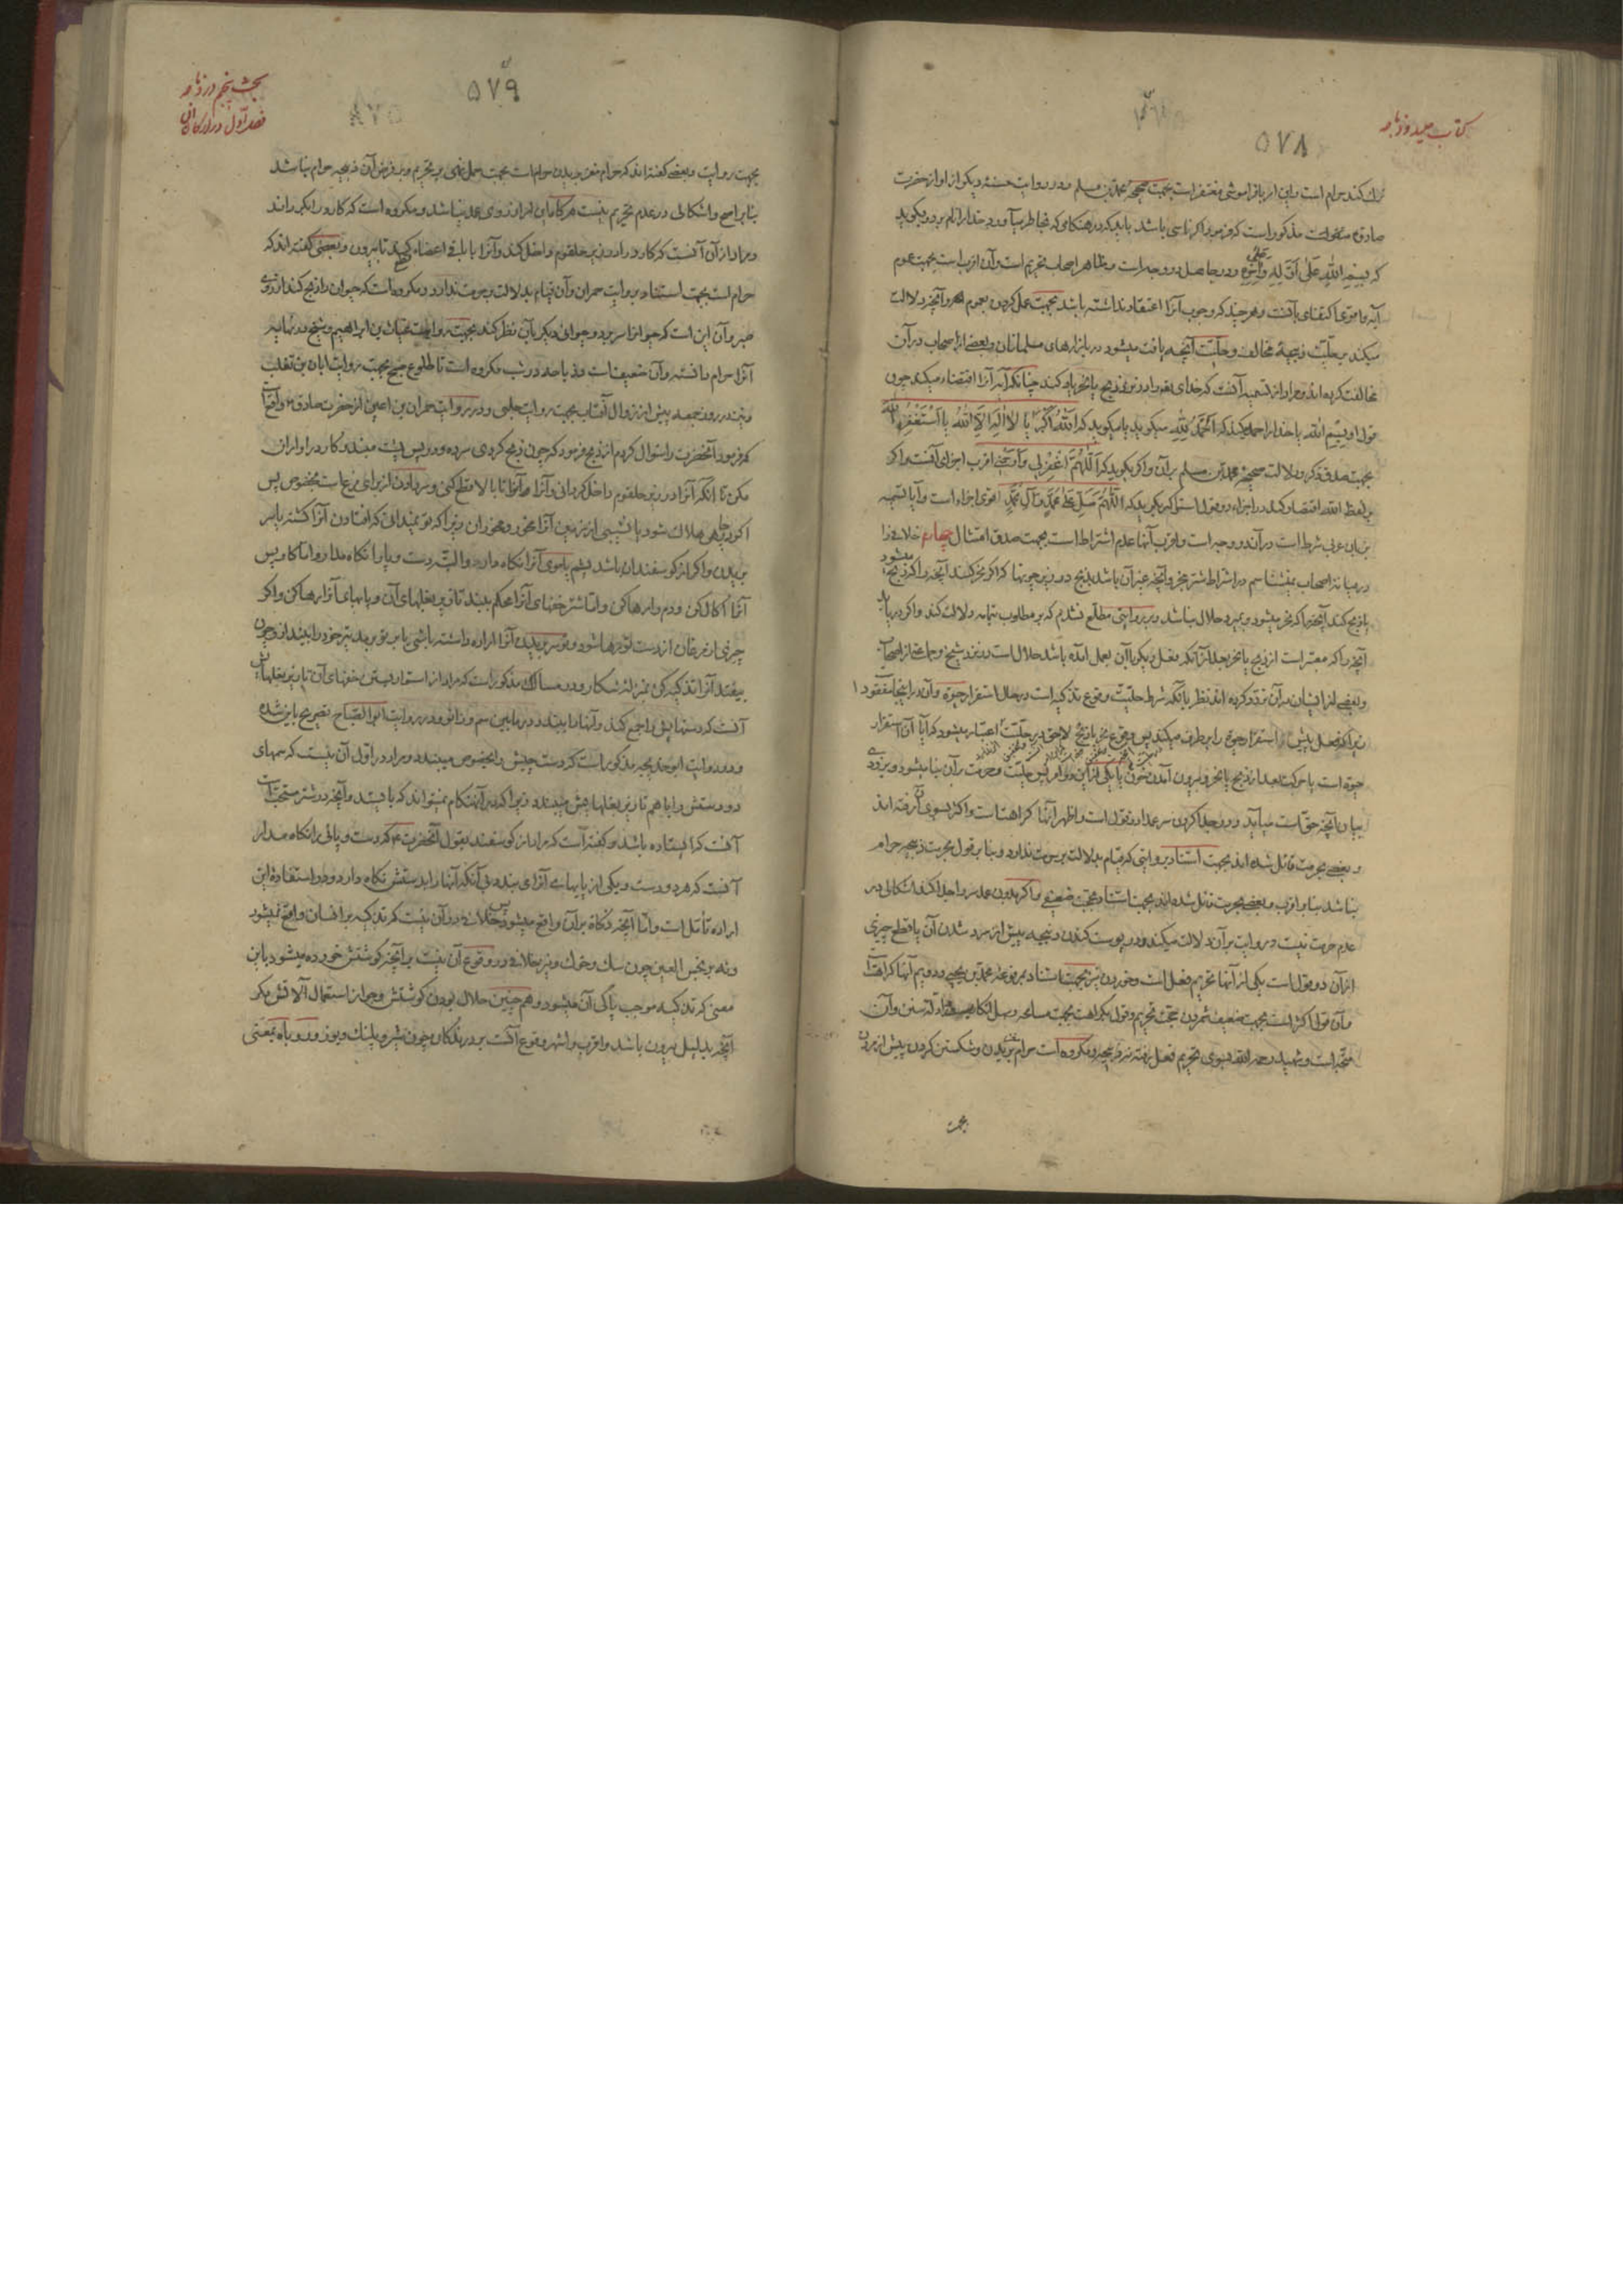 کتاب صید و ذبایح
۵۷۸
ترک کند حرام است و این امر با فراموشی مغتفر است بجهت صحیحه محمد بن مسلم و در روایت حسنهٔ دیگر از او از حضرت
صادق منقولست مذکور است که فرمود اگر ناسی باشد باید که در هنگامی که بخاطر میآورد خدا را نام برد و بگوید
که بسم الله علی اوله و آخره و در جاهل دو وجه است و ظاهر اصحاب تحریم است و آن اقربست بجهت عموم
آیه و اقوی اکتفای بآنست و هر چند که وجوب آنرا اعتقاد نداشته باشد بجهت عمل کردن بعموم و آنچه دلالت
میکند بر حلیّت ذبیحهٔ مخالف و حلیّت آنچه یافت میشود در بازارهای مسلمانان و بعضی از اصحاب در آن
مخالفت کرده‌اند و مراد از تسمیه آنست که خدای را در نزد ذبح یا نحر یاد کند چنانکه آیه آنرا اقتضاء میکند چون
قول او بسم الله یا خدا را حمد کند که الحمد لله میگوید یا میگوید که الله اکبر یا لا اله الا الله یا استغفر الله
بجهت صدق ذکر و دلالت صحیحه محمد بن مسلم بر آن و اگر بگوید که اللهم اغفرلی و ارحمنی اقرب اجزای آنست و اگر
بر لفظ الله اقتصار کند در اجزاء دو قولست و اگر بگوید که اللهم صل علی محمد و آل محمد اقوی اجزاء است و آیا تسمیه
بزبان عربی شرط است در آن دو وجه است و اقرب آنها عدم اشتراط است بجهت صدق امتثال چهارم خلافی را
در میانهٔ اصحاب نمیشناسم در اشتراط شتر بنحر و آنچه غیر آن باشد بذبح در زیر چونها که اگر نحر کند آنچه را که ذبح میشود
یا ذبح کند آنچه را که نحر میشود و بمیرد حلال نباشد و بر روایتی مطلع نشدم که بر مطلوب بتمامه دلالت کند و اگر دریابد
آنچه را که معتبر است از ذبح یا نحر بعد از آنکه فعل دیگر با آن بعمل آمده باشد حلال است در نزد شیخ و جماعتی از اصحاب
و بعضی از ایشان در آن تردد کرده‌اند نظر بآنکه شرط حلیّت وقوع تذکیه است در حال استقرار حیوة و آن در اینجا مفقود
زیرا که فعل پیش استقرار حیوة را برطرف میکند پس وقوع نحر یا ذبح لاحق در حلیّت اعتبار میشود که آیا آن استقرار
حیوة است یا حرکت بعد از ذبح یا نحر و بیرون آمدن خون یا یکی از این دو امر پس حلیّت و حرمت بر آن بنا میشود و بزودی
بیان آنچه حق است میآید و در جدا کردن سر عمدا دو قول است و اظهر آنها کراهت است و اکثر بسوی آن رفته‌اند
و بعضی بحرمت قائل شده‌اند بجهت استناد بروایتی که قیام بدلالت بر حرمت ندارد و بنا بر قول بحرمت ذبیحه حرام
نباشد بنا بر اقرب و بعضی بحرمت قائل شده‌اند بجهت استناد بحجت ضعیفی و اگر بدون عمد سر را جدا کند اشکالی در
عدم حرمت نیست و روایت بر آن دلالت میکند و در پوست کندن ذبیحه پیش از سرد شدن آن یا قطع چیزی
از آن دو قول است یکی از آنها تحریم فعل است و خوردن نیز بجهت استناد بمرفوعهٔ محمد بن یحیی و دویم آنها کراهت
و آن قول اکثر است بجهت ضعیف شمردن حجت تحریم و قول بکراهت بجهت مسامحه در ادلهٔ سنن و آن
متجه است و شهید رحمه الله بسوی تحریم فعل رفته نه ذبیحه و مکروه است حرام مغز بریدن و شکستن گردن پیش از مردن
بجهت
بحث پنجم در ذبایح
فصل اول در ارکان آن
۵۷۹
بجهت روایت و بعضی گفته‌اند که حرام مغز بریدن حرام است بجهت حمل نهی بر تحریم و بر فرض آن ذبیحه حرام نباشد
بنا بر اصح و اشکالی در عدم تحریم نیست هرگاه این امر از روی عمد نباشد و مکروه است که کارد را برگرداند
و مراد از آن آنست که کارد را در زیر حلقوم داخل کند و آنرا با باقی اعضاء قطع کند تا بیرون و بعضی گفته‌اند که
حرام است بجهت استناد بروایت حمران و آن قیام بدلالت بر حرمت ندارد و مکروه است که حیوان را ذبح کند از روی
صبر و آن این است که حیوانرا سر ببرد و حیوانی دیگر بآن نظر کند بجهت روایت غیاث بن ابراهیم و شیخ در نهایه
آنرا حرام دانسته و آن ضعیف است و ذباحه در شب مکروه است تا طلوع صبح بجهت روایت ابان بن تغلب
و نیز در روز جمعه پیش از زوال آفتاب بجهت روایت حلبی و در روایت حمران بن اعین از حضرت صادق واقع است
که فرمود آنحضرت را سئوال کردم از ذبح فرمود که چون ذبح کردی سر ده و در پس پشت مبند و کارد را وارانی
مکن تا آنکه آنرا در زیر حلقوم داخل کردانی و آنرا تا بالا قطع کنی و سر دادن از برای مرغ است بخصوص پس
اگر در چاهی هلاک شود یا نشیبی از زمین آنرا مخور و مخوران زیرا که تو نمیدانی که افتادن آنرا کشته یا سر
بریدن و اگر از گوسفندان باشد پشم یا موی آنرا نگاه دار و البته دست و پا را نگاه مدار و اما گاو پس
آنرا عقال کن و دم را رها کن و اما شتر خفهای آنرا محکم ببند تا زیر بغلهای آن و پاهای آنرا رها کن و اگر
چیزی از مرغان از دست تو رها شود و تو سر بریدن آنرا اراده داشته باشی یا بر تو برمد تیر خود را بینداز و چون
بیفتد آنرا تذکیه کن بمنزلهٔ شکار و در مسالک مذکور است که مراد از استوار بستن خفهای آن تا زیر بغلها
آنست که دستهایش را جمع کند و آنها را ببندد در مابین سم و زانو و در روایت ابو الصباح تصریح باین شده
و در روایت ابو خدیجه مذکور است که دست چپش را بخصوص میبندد و مراد در اول آن نیست که سمهای
دو دستش را با هم تا زیر بغلهایش ببندد زیرا که در آنهنگام نمیتواند که بایستد و آنچه در شتر مستحب است
آنست که ایستاده باشد و گفته است که مراد از گوسفند بقول آنحضرت که دست و پائی را نگاه مدار
آنست که هر دو دست و یکی از پایهای آنرا ببندد بی آنکه آنها را بدستش نگاه دارد و در استفادهٔ این
اراده تأمل است و اما آنچه ذکاة بر آن واقع میشود پس خلافی در آن نیست که تذکیه بر انسان واقع نمیشود
و نه بر نجس العین چون سگ و خوک و نیز خلافی در وقوع آن نیست بر آنچه گوشتش خورده میشود باین
معنی که تذکیه موجب پاکی آن میشود و همچنین حلال بودن گوشتش و جواز استعمال آلاتش مگر
آنچه بدلیل بیرون باشد و اقرب و اشهر وقوع آنست بر درندگان چون شیر و پلنگ و یوز و روباه بمعنی